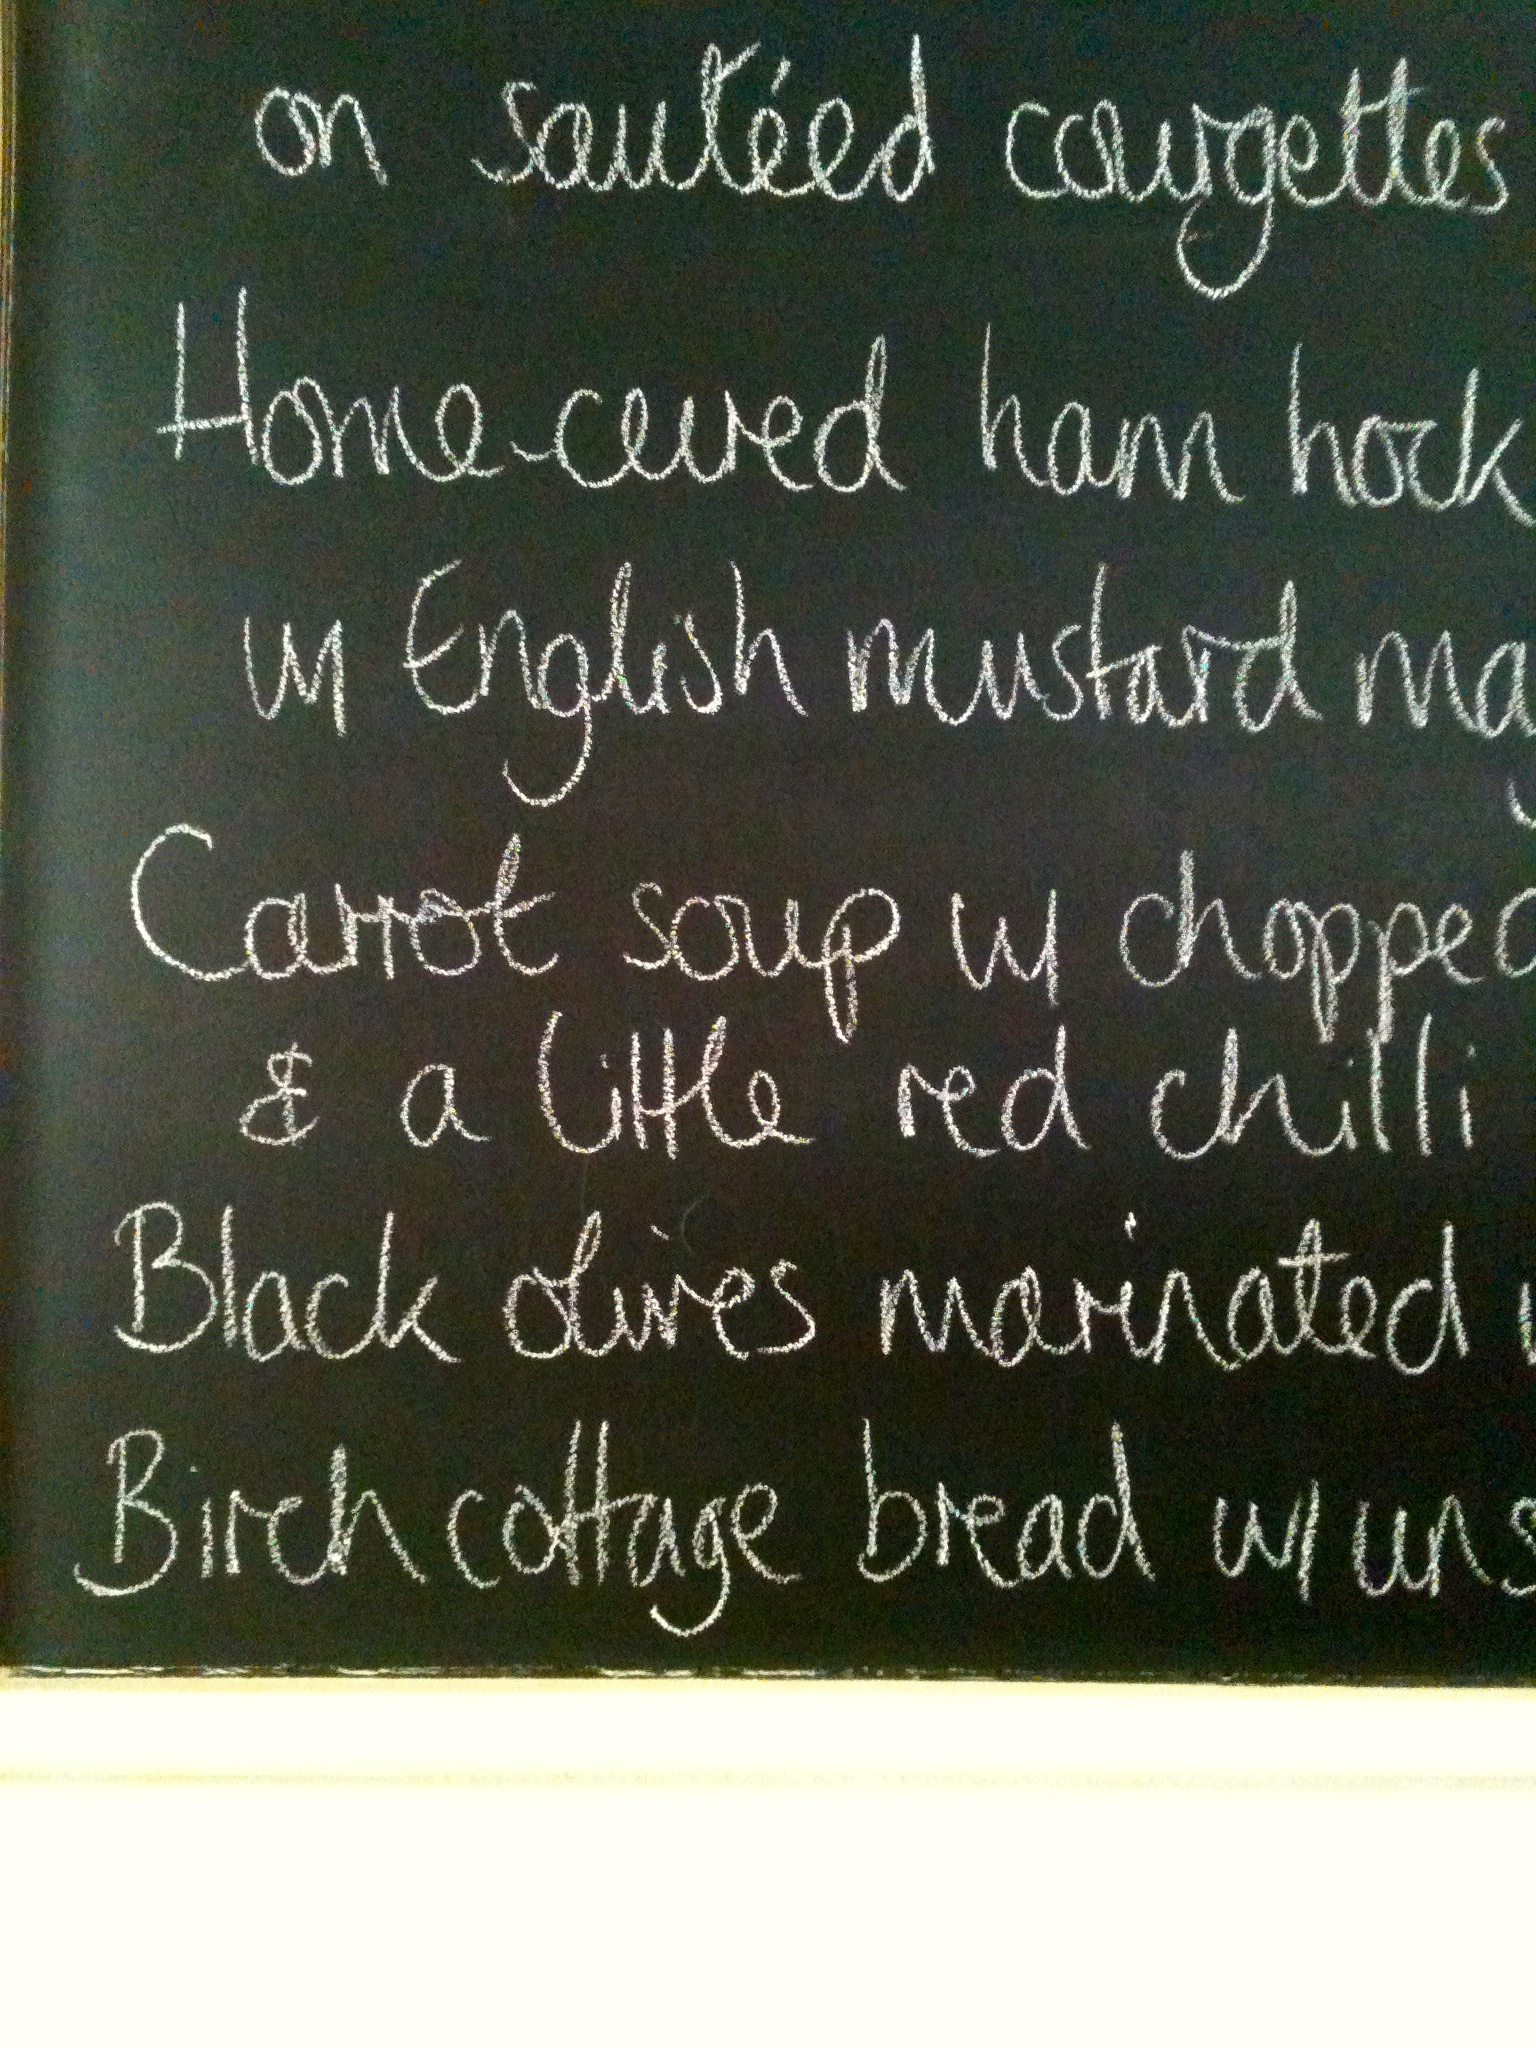 on sautéed courgettes
Home-cured ham hock
w/ English mustard ma
Carrot soup w/ chopped
& a little red chilli
Black olives marinated
Birch cottage bread w/ uns